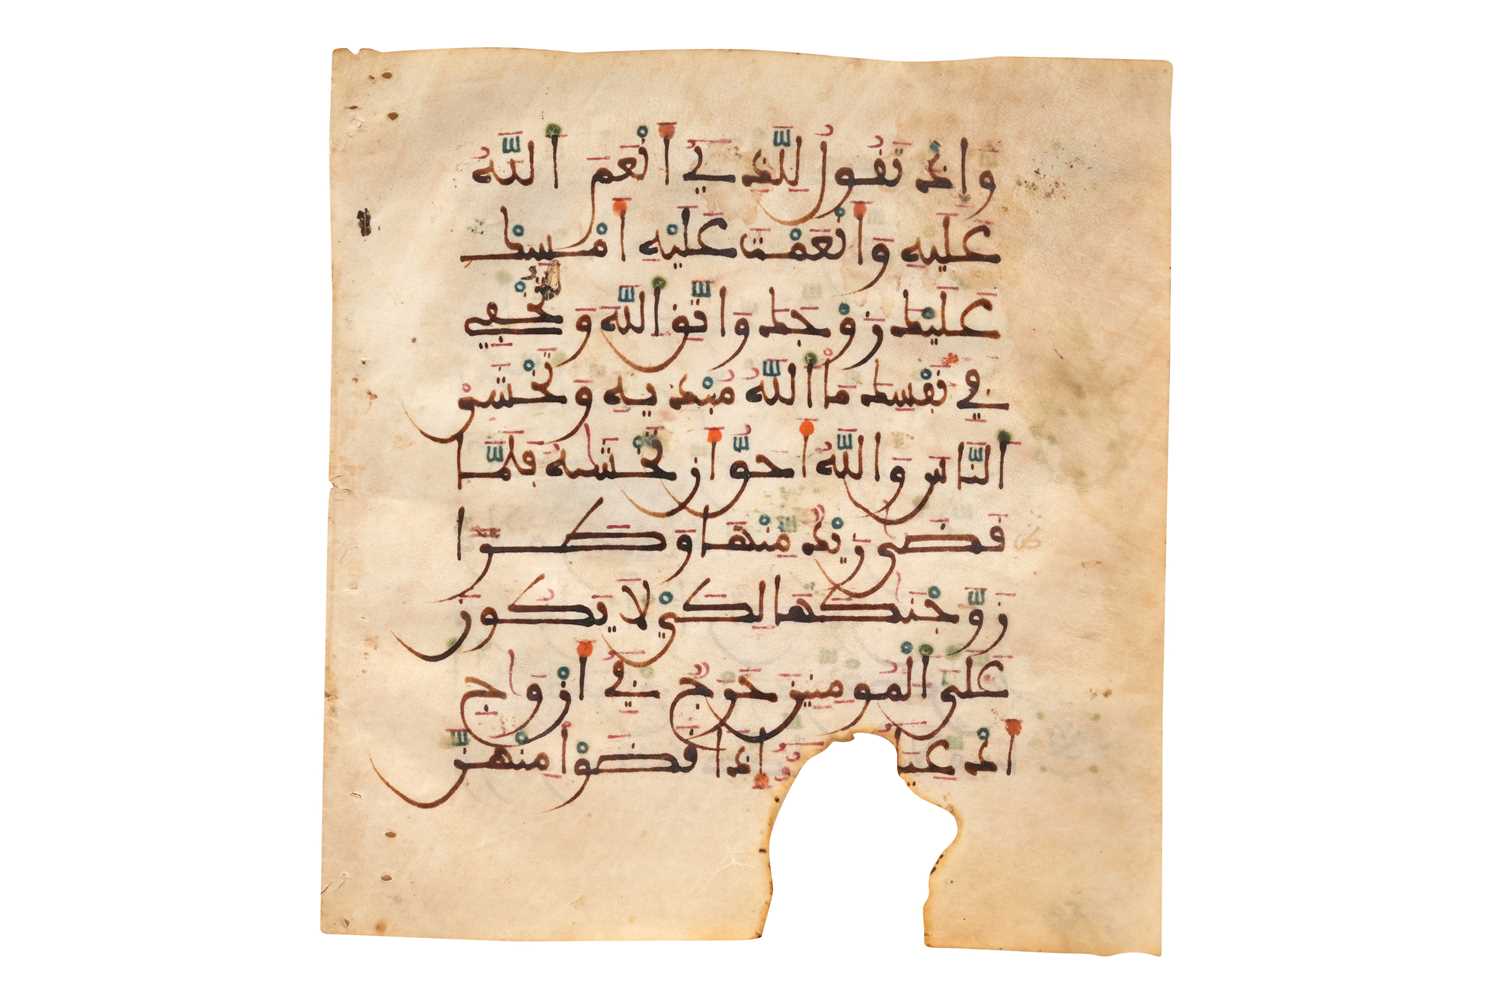 واذ تقول للذي انعم الله
عليه وانعمت عليه امسك
عليك زوجك واتق الله وتخفي
في نفسك ما الله مبديه وتخشى
الناس والله احق ان تخشيه فلما
قضى زيد منها وطرا
زوجنكها لكي لا يكون
على المومنين حرج في ازواج
ادعيا اذا قضوا منهن